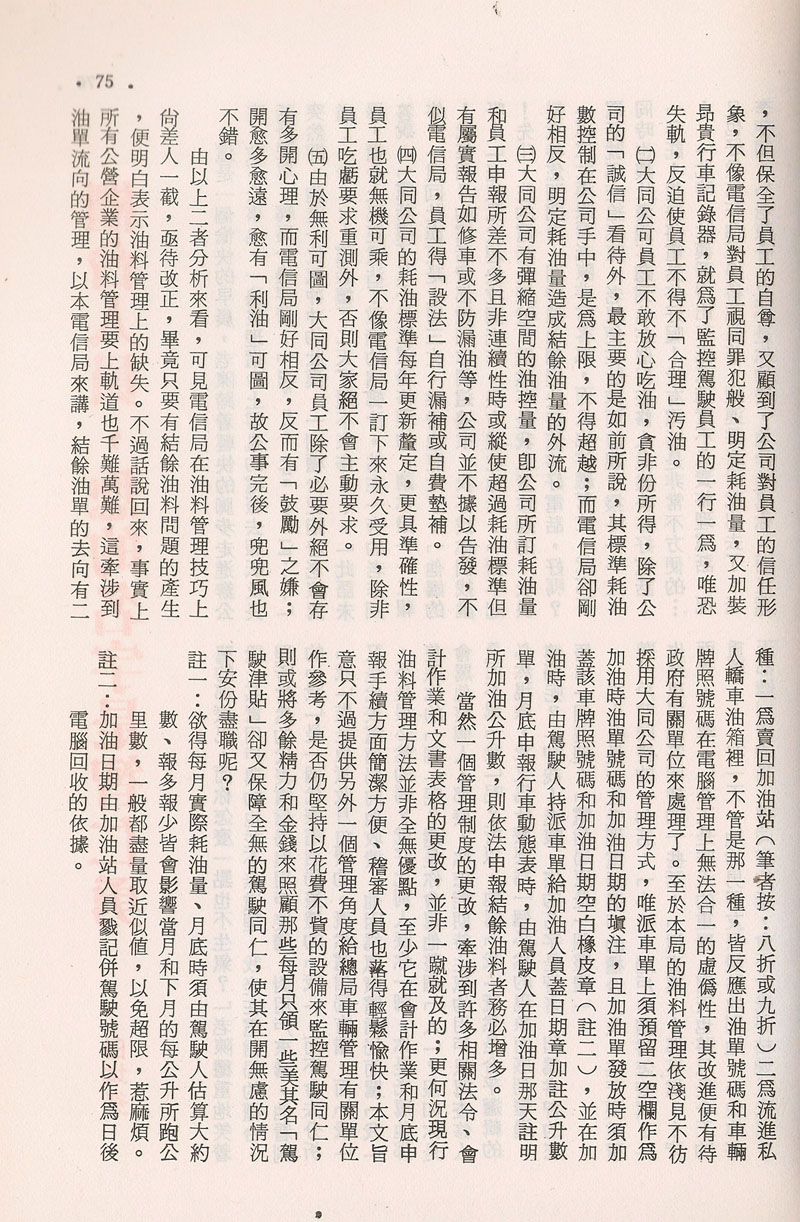 • 75 •
，不但保全了員工的自尊，又顧到了公司對員工的信任形
象，不像電信局對員工視同罪犯般、明定耗油量，又加裝
昂貴行車記錄器，就爲了監控駕駛員工的一行一爲，唯恐
失軌，反迫使員工不得不「合理」汚油。
㈡大同公司員工不敢放心吃油，貪非份所得，除了公
司的「誠信」看待外，最主要的是如前所說，其標準耗油
數控制在公司手中，是爲上限，不得超越；而電信局卻剛
好相反，明定耗油量造成結餘油量的外流。
㈢大同公司有彈縮空間的油控量，卽公司所訂耗油量
和員工申報所差不多且非連續性時或縱使超過耗油標準但
有屬實報告如修車或不防漏油等，公司並不據以告發，不
似電信局，員工得「設法」自行漏補或自費墊補。
㈣大同公司的耗油標準每年更新釐定，更具準確性，
員工也就無機可乘，不像電信局一訂下來永久受用，除非
員工吃虧要求重測外，否則大家絕不會主動要求。
㈤由於無利可圖，大同公司員工除了必要外絕不會存
有多開心理，而電信局剛好相反，反而有「鼓勵」之嫌；
開愈多愈遠，愈有「利油」可圖，故公事完後，兜兜風也
不錯。
由以上二者分析來看，可見電信局在油料管理技巧上
尙差人一截，亟待改正，畢竟只要有結餘油料問題的產生
，便明白表示油料管理上的缺失。不過話說回來，事實上
所有公營企業的油料管理要上軌道也千難萬難，這牽涉到
油單流向的管理，以本電信局來講，結餘油單的去向有二
種：一爲賣回加油站（筆者按：八折或九折）二爲流進私
人轎車油箱裡，不管是那一種，皆反應出油單號碼和車輛
牌照號碼在電腦管理上無法合一的虛僞性，其改進便有待
政府有關單位來處理了。至於本局的油料管理依淺見不彷
採用大同公司的管理方式，唯派車單上須預留二空欄作爲
加油時油單號碼和加油日期的塡注，且加油單發放時須加
蓋該車牌照號碼和加油日期空白橡皮章（註二），並在加
油時，由駕駛人持派車單給加油人員蓋日期章加註公升數
單，月底申報行車動態表時，由駕駛人在加油日那天註明
所加油公升數，則依法申報結餘油料者務必增多。
當然一個管理制度的更改，牽涉到許多相關法令、會
計作業和文書表格的更改，並非一蹴就及的；更何況現行
油料管理方法並非全無優點，至少它在會計作業和月底申
報手續方面簡潔方便、稽審人員也落得輕鬆愉快；本文旨
意只不過提供另外一個管理角度給總局車輛管理有關單位
作參考，是否仍堅持以花費不貲的設備來監控駕駛同仁；
則或將多餘精力和金錢來照顧那些每月只領一些美其名「駕
駛津貼」卻又保障全無的駕駛同仁，使其在開無慮的情況
下安份盡職呢？
註一：欲得每月實際耗油量、月底時須由駕駛人估算大約
數、報多報少皆會影響當月和下月的每公升所跑公
里數，一般都盡量取近似値，以免超限，惹麻煩。
註二：加油日期由加油站人員戳記併駕駛號碼以作爲日後
電腦回收的依據。